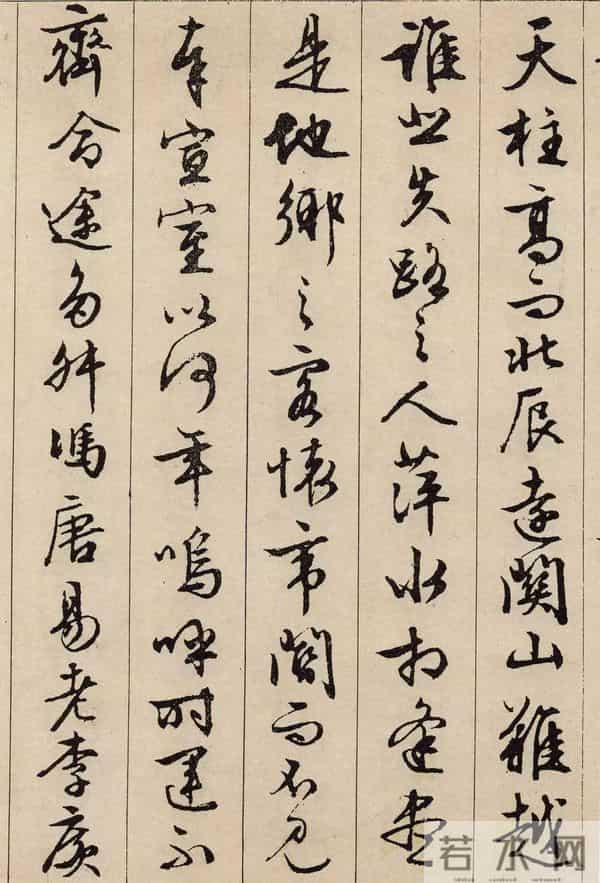 天柱高而北辰遠關山難越
誰悲失路之人萍水相逢盡
是他鄉之客懷帝閽而不見
奉宣室以何年嗚呼時運不
齊命途多舛馮唐易老李廣
若水网